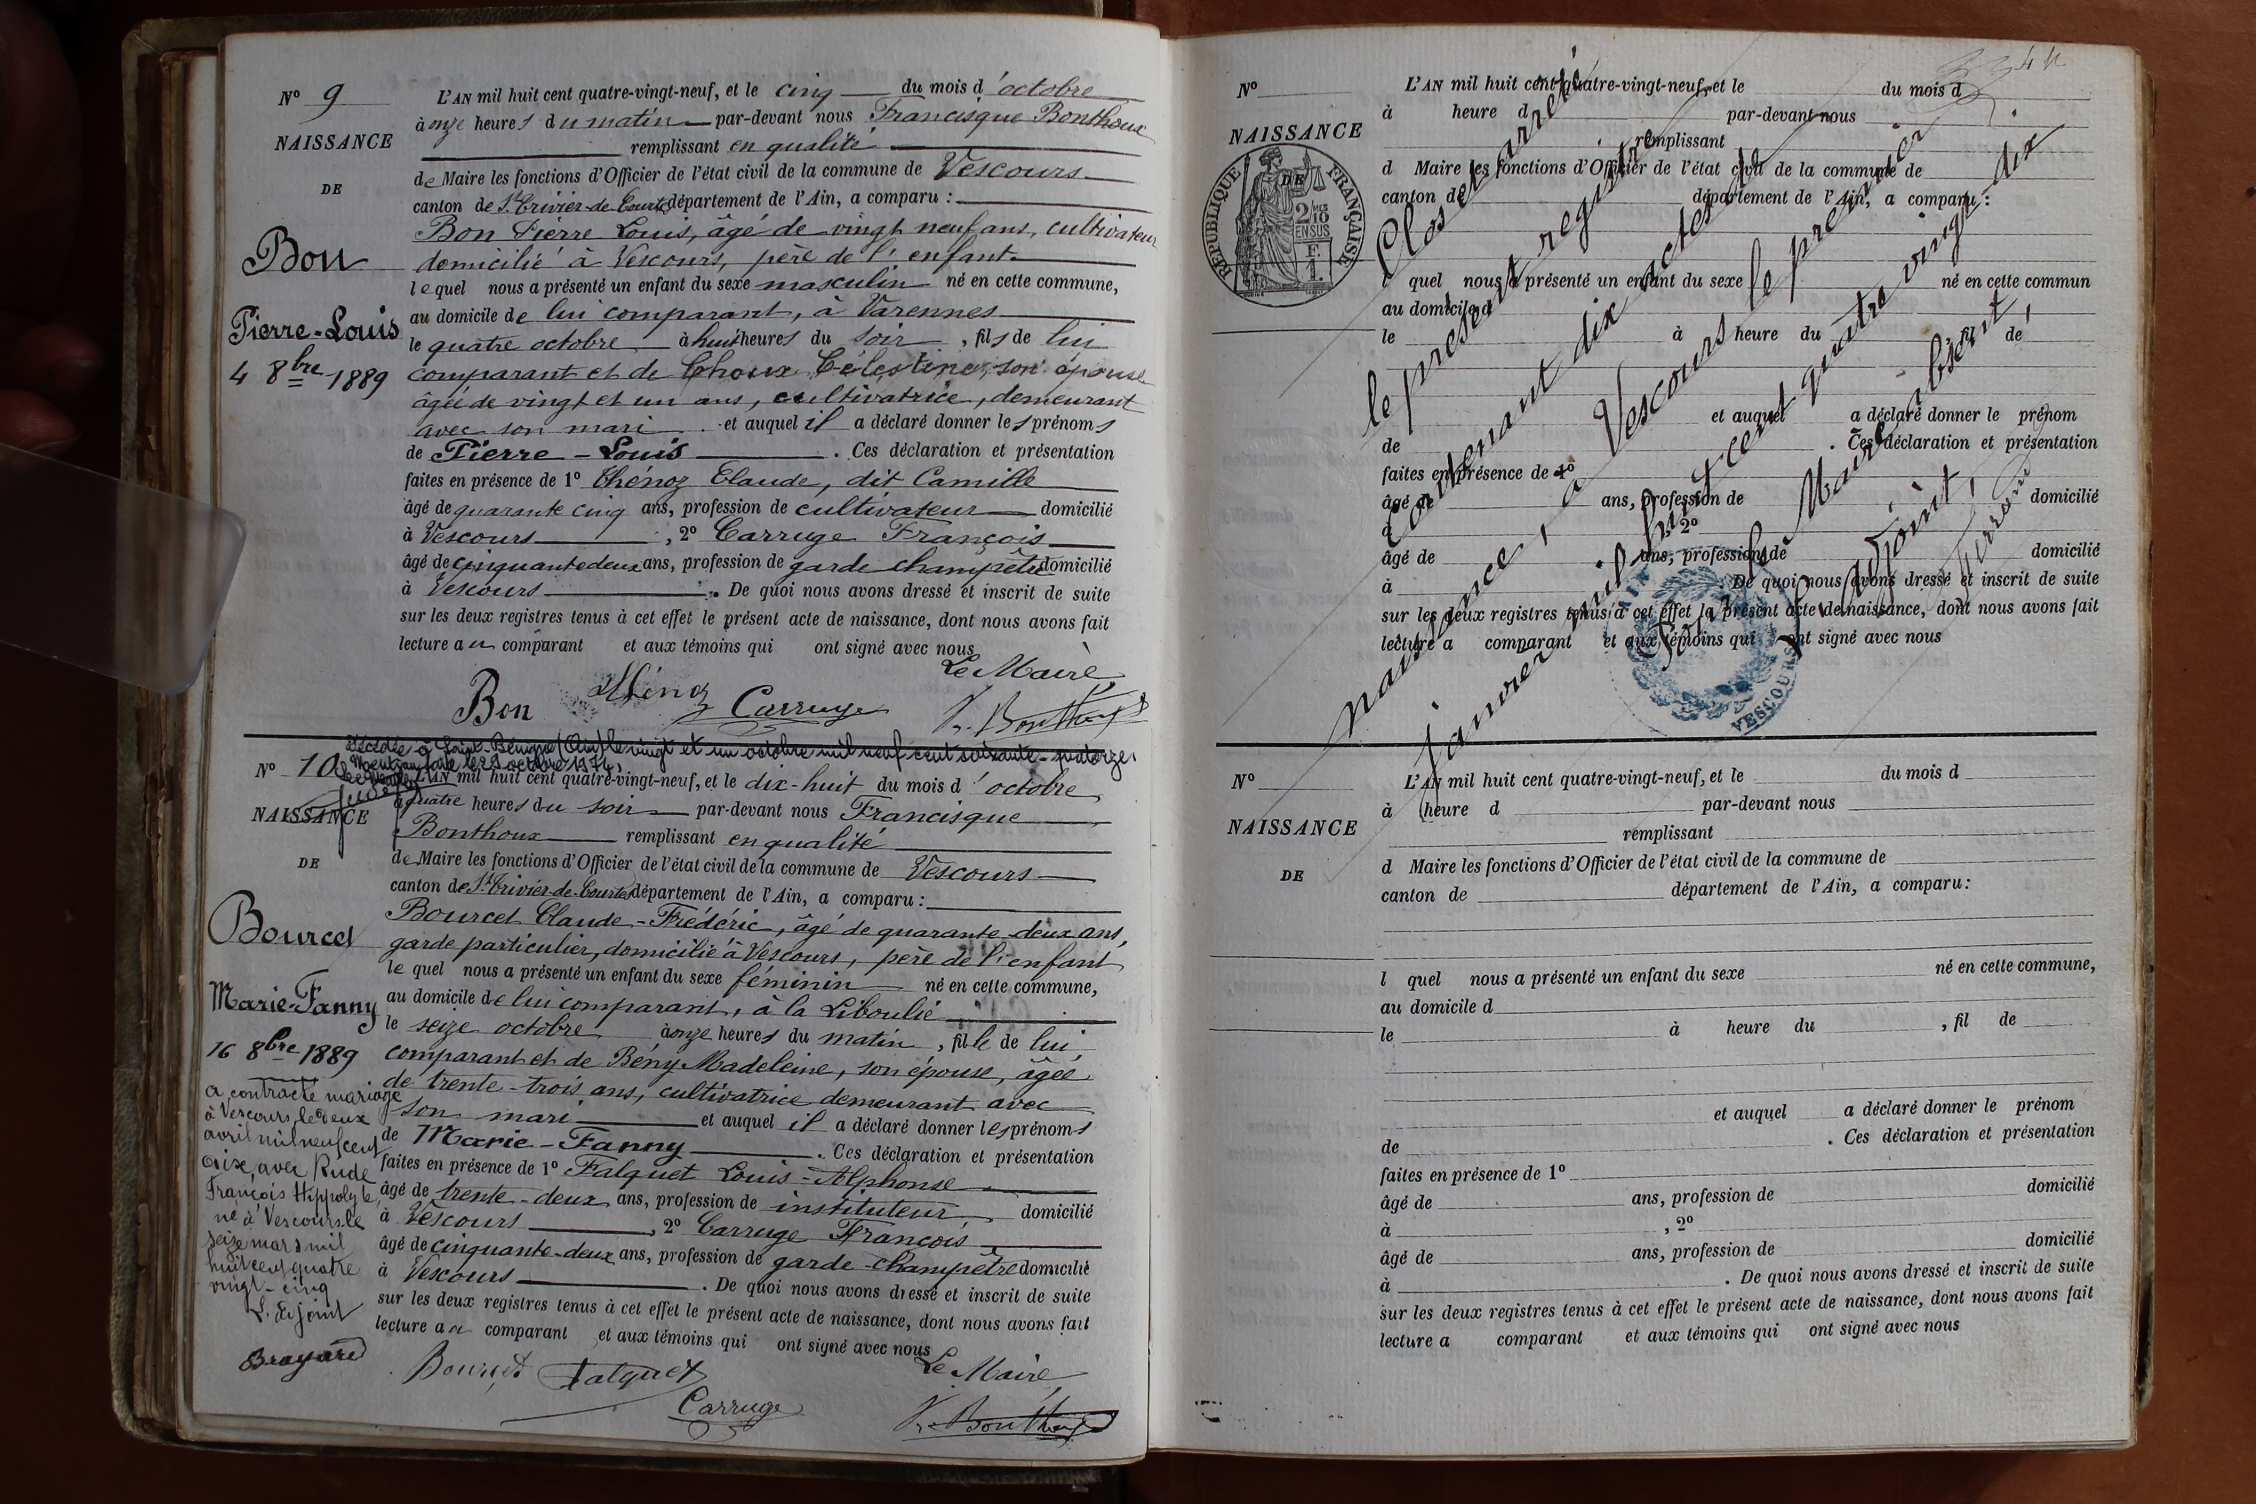 N° 9
NAISSANCE
DE
Bon
Pierre-Louis
4 8bre 1889
L'AN mil huit cent quatre-vingt-neuf, et le cinq du mois d'octobre
à onze heures du matin par-devant nous Francisque Bonthoux
remplissant en qualité
de Maire les fonctions d'Officier de l'état civil de la commune de Vescours
canton de St Trivier-de-Courtes département de l'Ain, a comparu :
Bon Pierre Louis, âgé de vingt neuf ans, cultivateur
domicilié à Vescours, père de l'enfant
lequel nous a présenté un enfant du sexe masculin né en cette commune,
au domicile de lui comparant, à Varennes
le quatre octobre à huit heures du soir, fils de lui
comparant et de Choux Célestine, son épouse
âgée de vingt et un ans, cultivatrice, demeurant
avec son mari et auquel il a déclaré donner les prénoms
de Pierre-Louis. Ces déclaration et présentation
faites en présence de 1° Thénoz Claude, dit Camille
âgé de quarante cinq ans, profession de cultivateur domicilié
à Vescours, 2° Carruge François
âgé de cinquante deux ans, profession de garde champêtre domicilié
à Vescours. De quoi nous avons dressé et inscrit de suite
sur les deux registres tenus à cet effet le présent acte de naissance, dont nous avons fait
lecture au comparant et aux témoins qui ont signé avec nous
Le Maire,
Bon Thénoz Carruge F. Bonthoux
Décédée à Saint-Bénigne (Ain) le vingt et un octobre mil neuf cent soixante-quatorze.
N° 10
NAISSANCE
DE
Bourcet
Marie-Fanny
16 8bre 1889
a contracté mariage
à Vescours le deux
avril mil neuf cent
dix, avec Rude
François Hippolyte,
né à Vescours le
seize mars mil
huit cent quatre
vingt-cinq
L'adjoint
Brayard
L'AN mil huit cent quatre-vingt-neuf, et le dix-huit du mois d'octobre
à quatre heures du soir par-devant nous Francisque
Bonthoux remplissant en qualité
de Maire les fonctions d'Officier de l'état civil de la commune de Vescours
canton de St Trivier-de-Courtes département de l'Ain, a comparu :
Bourcet Claude-Frédéric, âgé de quarante-deux ans,
garde particulier, domicilié à Vescours, père de l'enfant
lequel nous a présenté un enfant du sexe féminin né en cette commune,
au domicile de lui comparant, à la Liboulié
le seize octobre à onze heures du matin, fille de lui
comparant et de Bény Madeleine, son épouse, âgée
de trente-trois ans, cultivatrice demeurant avec
son mari et auquel il a déclaré donner les prénoms
de Marie-Fanny. Ces déclaration et présentation
faites en présence de 1° Falquet Louis-Alphonse
âgé de trente-deux ans, profession de instituteur domicilié
à Vescours, 2° Carruge François
âgé de cinquante-deux ans, profession de garde-champêtre domicilié
à Vescours. De quoi nous avons dressé et inscrit de suite
sur les deux registres tenus à cet effet le présent acte de naissance, dont nous avons fait
lecture au comparant et aux témoins qui ont signé avec nous
Le Maire,
Bourcet Falquet
Carruge F. Bonthoux
N°
NAISSANCE
DE
RÉPUBLIQUE FRANÇAISE
2/10 EN SUS
L'AN mil huit cent quatre-vingt-neuf, et le du mois d
à heure d par-devant nous
remplissant
d Maire les fonctions d'Officier de l'état civil de la commune de
canton de département de l'Ain, a comparu :
l quel nous a présenté un enfant du sexe né en cette commun
au domicile d
le à heure du , fil de
et auquel a déclaré donner le prénom
de . Ces déclaration et présentation
faites en présence de 1°
âgé de ans, profession de domicilié
à , 2°
âgé de ans, profession de domicilié
à . De quoi nous avons dressé et inscrit de suite
sur les deux registres tenus à cet effet le présent acte de naissance, dont nous avons fait
lecture a comparant et aux témoins qui ont signé avec nous
Clos et arrêté
le présent registre
contenant dix actes de
naissance, à Vescours le premier
janvier mil huit cent quatre vingt-dix
Pour le Maire absent,
l'adjoint,
VESCOURS
N°
NAISSANCE
DE
L'AN mil huit cent quatre-vingt-neuf, et le du mois d
à heure d par-devant nous
remplissant
d Maire les fonctions d'Officier de l'état civil de la commune de
canton de département de l'Ain, a comparu :
l quel nous a présenté un enfant du sexe né en cette commune,
au domicile d
le à heure du , fil de
et auquel a déclaré donner le prénom
de . Ces déclaration et présentation
faites en présence de 1°
âgé de ans, profession de domicilié
à , 2°
âgé de ans, profession de domicilié
à . De quoi nous avons dressé et inscrit de suite
sur les deux registres tenus à cet effet le présent acte de naissance, dont nous avons fait
lecture a comparant et aux témoins qui ont signé avec nous